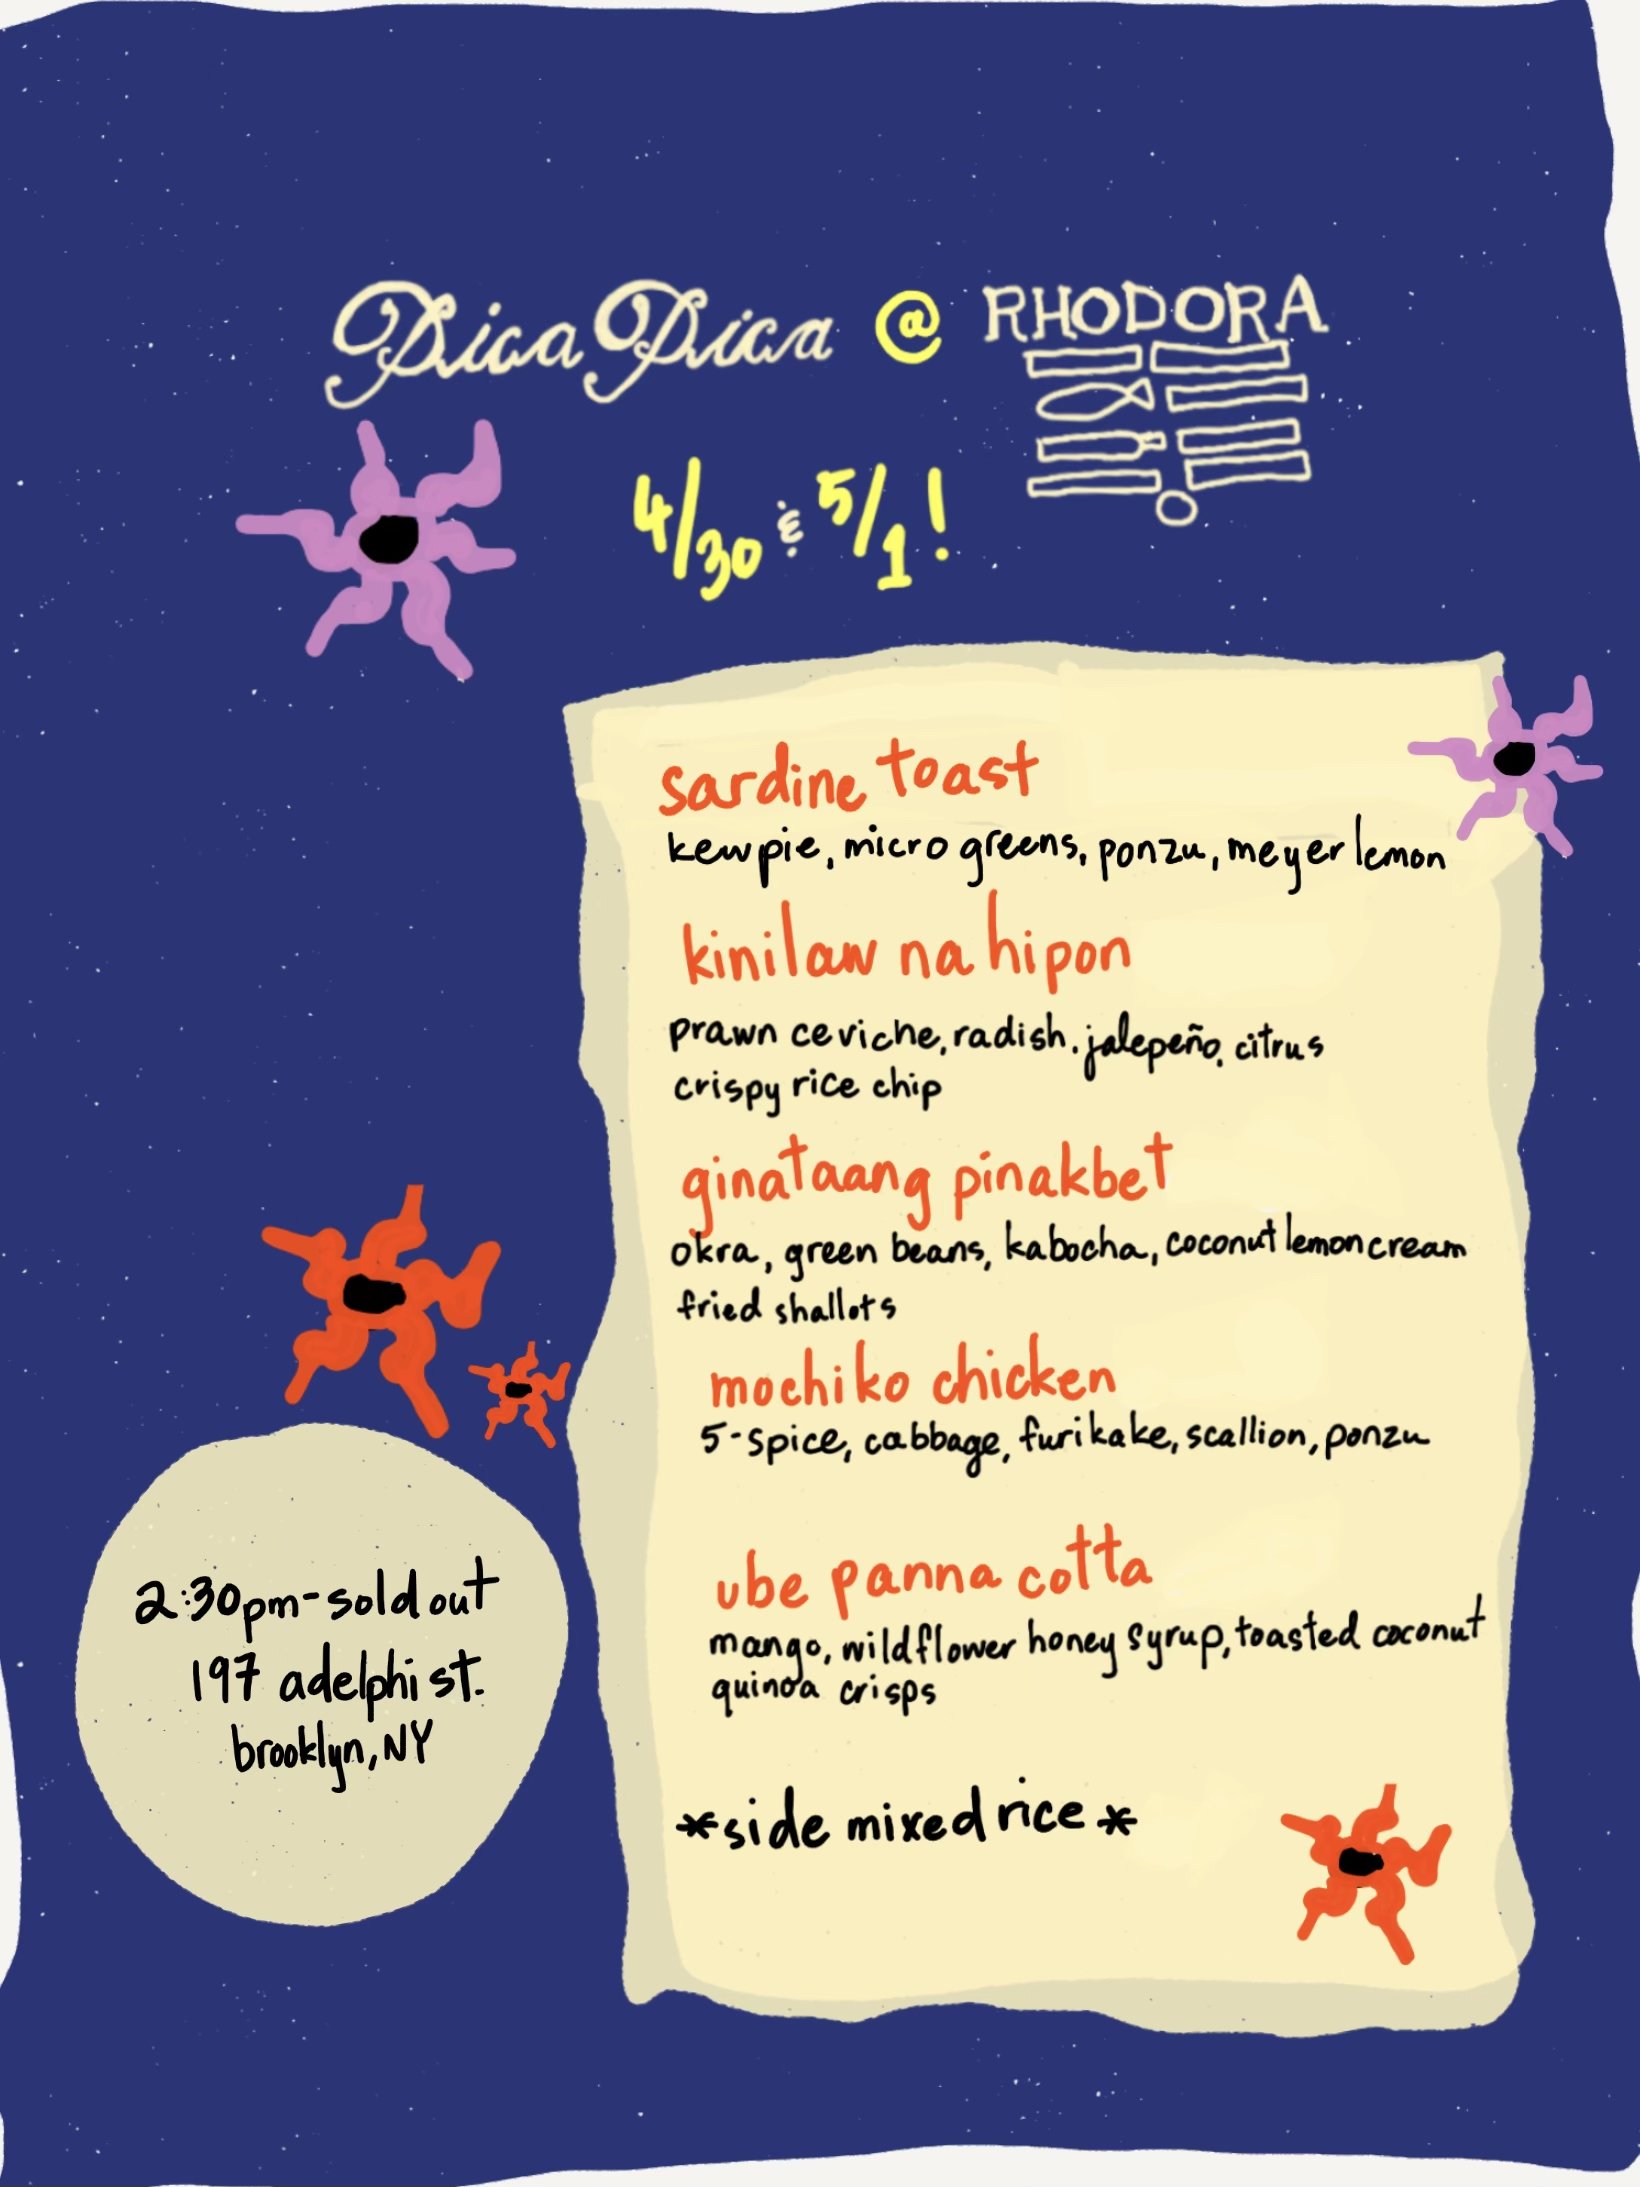 Pica Pica @ RHODORA
4/30 & 5/1!
sardine toast
kewpie, micro greens, ponzu, meyer lemon
kinilaw na hipon
prawn ceviche, radish, jalepeño, citrus
crispy rice chip
ginataang pinakbet
okra, green beans, kabocha, coconut lemon cream
fried shallots
mochiko chicken
5-spice, cabbage, furikake, scallion, ponzu
ube panna cotta
mango, wildflower honey syrup, toasted coconut
quinoa crisps
*side mixed rice*
2:30pm-sold out
197 adelphi st.
brooklyn, NY